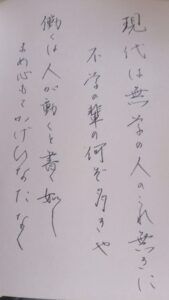 現代は無学の人のこれ無きに
不学の輩の何ぞ多きや
働くは人が動くと書く如し
まめ心もてかげひなたなく